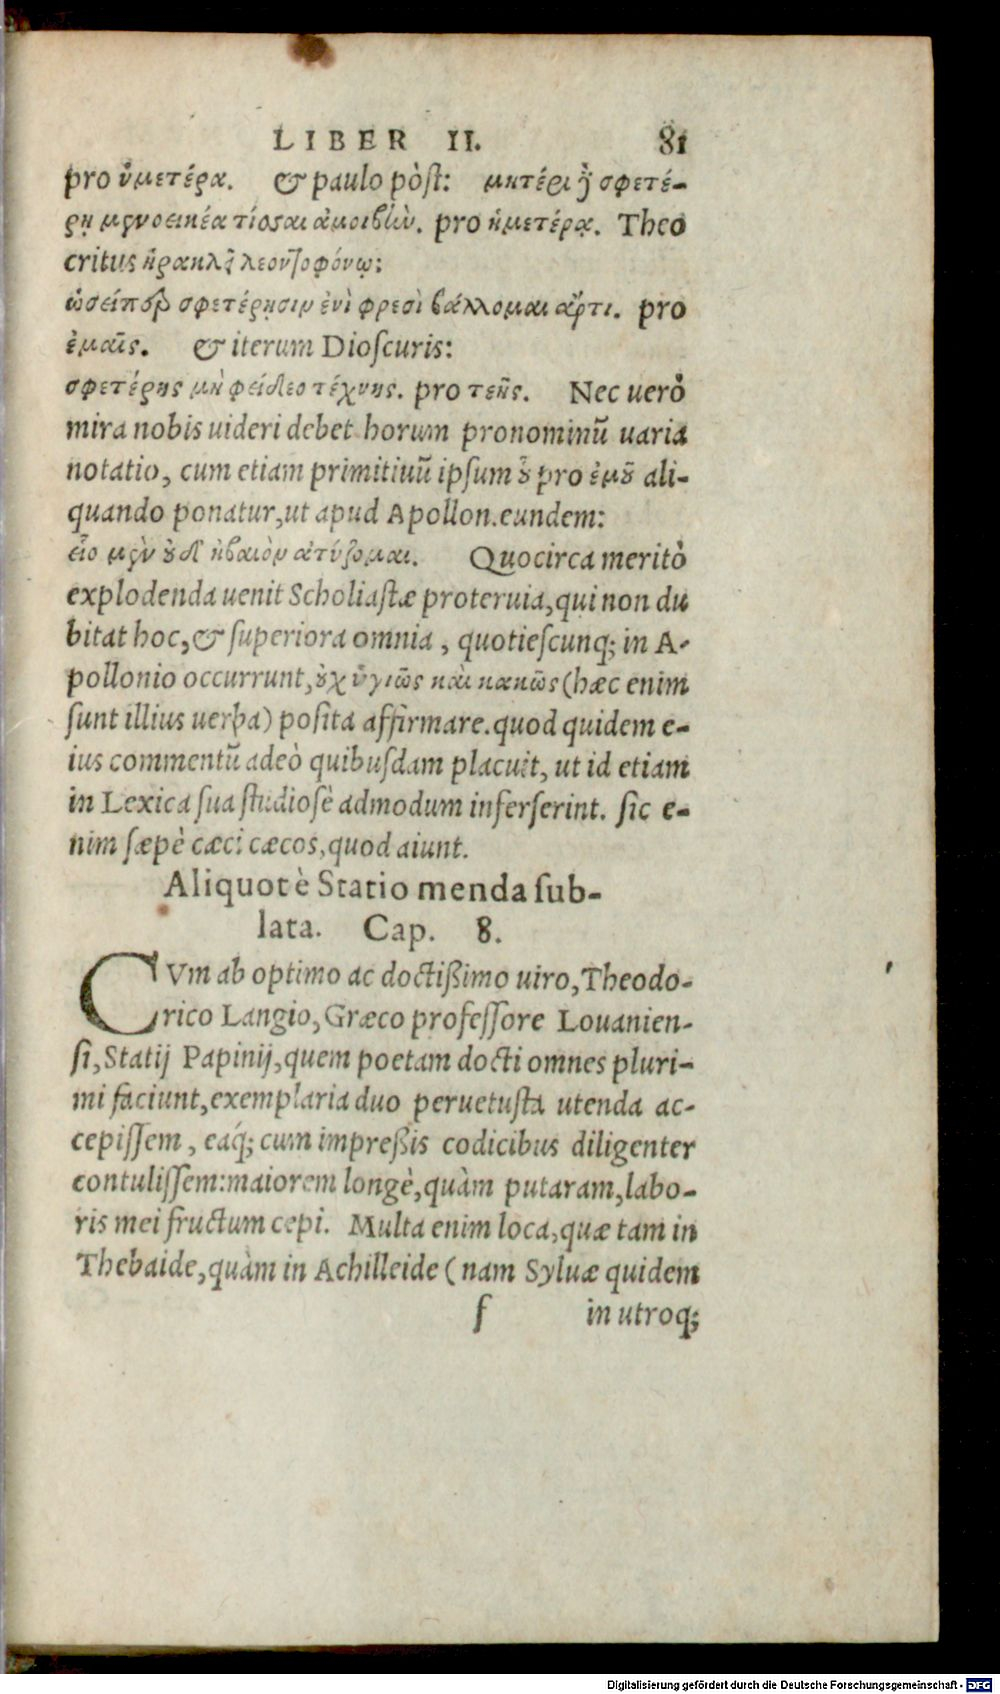 LIBER II. 81
pro ὑμετέρα. & paulo pòst: μητέρι δ σφετέ-
ρῃ μενοεικέα τίοσαι ἀμοιβὼν. pro ἡμετέρᾳ. Theo
critus ἡρακλεῖ λεοντοφόνῳ:
ὡσείπερ σφετέρῃσιν ἐνὶ φρεσὶ βάλλομαι ἄρτι. pro
ἐμαῖς. & iterum Dioſcuris:
σφετέρης μὴ φείδεο τέχνης. pro τεῆς. Nec uerò
mira nobis uideri debet horum pronominũ uaria
notatio, cum etiam primitiuũ ipſum οὗ pro ἐμοῦ ali-
quando ponatur, ut apud Apollon. eundem:
εἷο μὲν οὐδ᾽ ἠβαιὸν ἀτύζομαι. Quocirca meritò
explodenda uenit Scholiaſtæ proteruia, qui non du
bitat hoc, & ſuperiora omnia, quotieſcunq; in A-
pollonio occurrunt, οὐχ ὑγιῶς καὶ κακῶς (hæc enim
ſunt illius uerba) poſita affirmare. quod quidem e-
ius commentũ adeò quibuſdam placuit, ut id etiam
in Lexica ſua ſtudioſè admodum inferſerint. ſic e-
nim ſæpè cæci cæcos, quod aiunt.
Aliquot è Statio menda ſub-
lata. Cap. 8.
CVm ab optimo ac doctißimo uiro, Theodo-
rico Langio, Græco profeſſore Louanien-
ſi, Statij Papinij, quem poetam docti omnes pluri-
mi faciunt, exemplaria duo peruetuſta utenda ac-
cepiſſem, eaq́; cum impreßis codicibus diligenter
contuliſſem: maiorem longè, quàm putaram, labo-
ris mei fructum cepi. Multa enim loca, quæ tam in
Thebaide, quàm in Achilleide (nam Syluæ quidem
f in utroq;
Digitalisierung gefördert durch die Deutsche Forschungsgemeinschaft - DFG